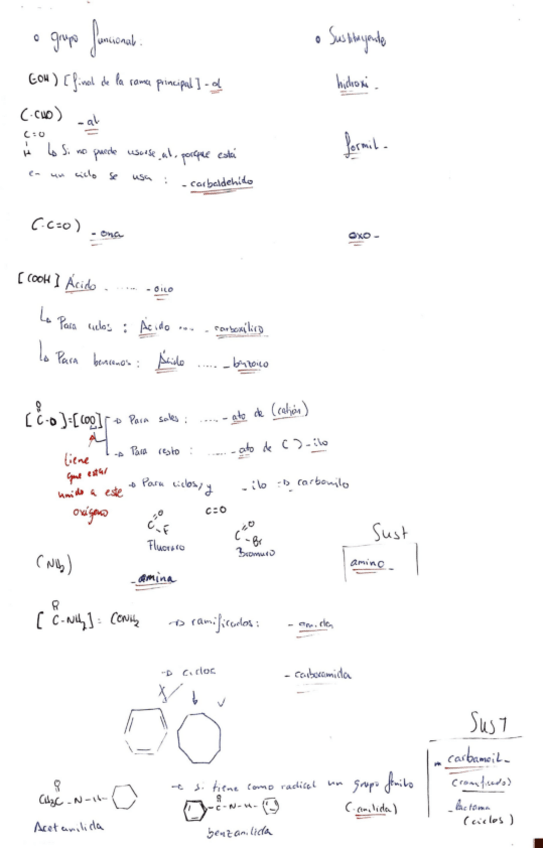 o grupo funcional. o Sustituyente
(-OH) [final de la rama principal] - ol hidroxi -
(-CHO) - al formil -
C=O
H ↳ Si no puede usarse al, porque está
en un ciclo se usa : - carbaldehido
(-C=O) - ona oxo -
[COOH] Ácido ....... - oico
↳ Para ciclos : Ácido .... - carboxílico
↳ Para bencenos : Ácido ..... - benzoico
O
[C-O]=[COO] → Para sales : ..... - ato de (catión)
→ Para resto : ...... - ato de ( ) - ilo
tiene
que estar
unido a este → Para ciclos, y - ilo → carbonilo
oxígeno C=O
C=O -F C=O -Br
Fluoruro Bromuro
Sust
(NH2) - amina amino -
O
[C-NH2] : CONH2 → ramificados : - amida
→ ciclos - carboxamida
X ✓
Sust
- carbamoil -
→ si tiene como radical un grupo fenilo (ramificado)
(- anilida) - lactama
(ciclos)
O
CH3C - N - H -
O
- C - N - H -
Acetanilida benzanilida